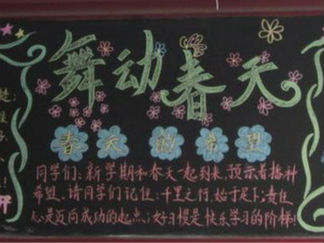 舞动春天
春天的希望
同学们：新学期和春天一起到来，预示着播种
希望。请同学们记住：千里之行，始于足下；责任
心是迈向成功的起点；好习惯是快乐学习的阶梯！